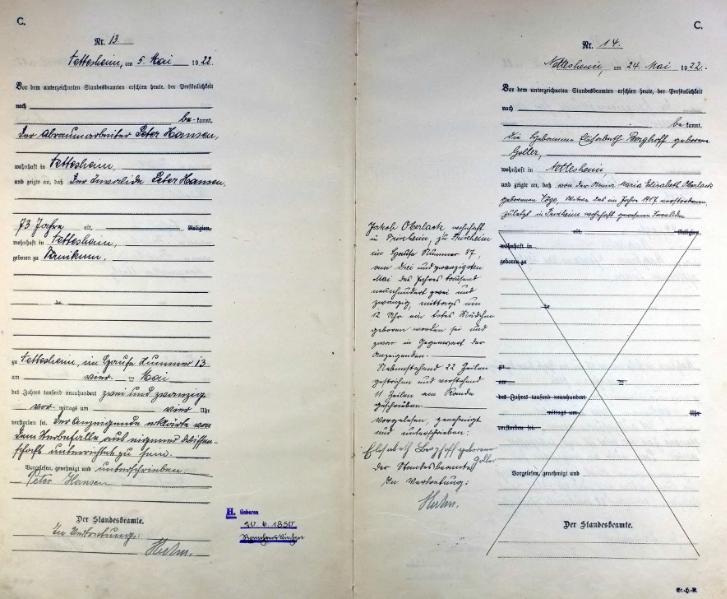 C.
Nr. 13
Nettesheim, am 5. Mai 1922.
Vor dem unterzeichneten Standesbeamten erschien heute, der Persönlichkeit
nach
be kannt,
Der Abraumarbeiter Peter Hansen,
wohnhaft in Nettesheim,
und zeigte an, daß Der Invalide Peter Hansen,
73 Jahre alt, Religion,
wohnhaft in Nettesheim,
geboren zu
zu Nettesheim, im Hause Nummer 13
am vier ten Mai
des Jahres tausend neunhundert zwei und zwanzig
vor mittags um vier Uhr
verstorben sei. Der Anzeigende erklärte von
dem Sterbefalle aus eigener Wissen-
schaft unterrichtet zu sein.
Vorgelesen, genehmigt und unterschrieben:
Peter Hansen
Der Standesbeamte.
In Vertretung:
H. Geboren
C.
Nr. 14.
Nettesheim, am 24 Mai 1922.
Vor dem unterzeichneten Standesbeamten erschien heute, der Persönlichkeit
nach
be kannt,
Die Hebamme Elisabeth geborene
Goller,
wohnhaft in Nettesheim,
und zeigte an, daß von der Maria Elisabeth Oberlack
geborenen Witwe des im Jahre 1917 verstorbenen
zuletzt in wohnhaft gewesenen
alt, Religion,
wohnhaft in
geboren zu
zu
am ten
des Jahres tausend neunhundert
mittags um Uhr
verstorben sei.
Vorgelesen, genehmigt und
Der Standesbeamte.
Jakob Oberlack wohnhaft
in zu
im Hause Nummer 57,
am drei und zwanzigsten
Mai des Jahres tausend
neunhundert zwei und
zwanzig, mittags um
12 Uhr ein totes Mädchen
geboren worden sei und
zwar in Gegenwart der
Anzeigenden.
Nebenstehend 22 Zeilen
gestrichen und vorstehend
11 Zeilen am Rande
geschrieben.
Vorgelesen, genehmigt
und unterschrieben:
Elisabeth geborene
Goller
der Standesbeamte
In Vertretung: